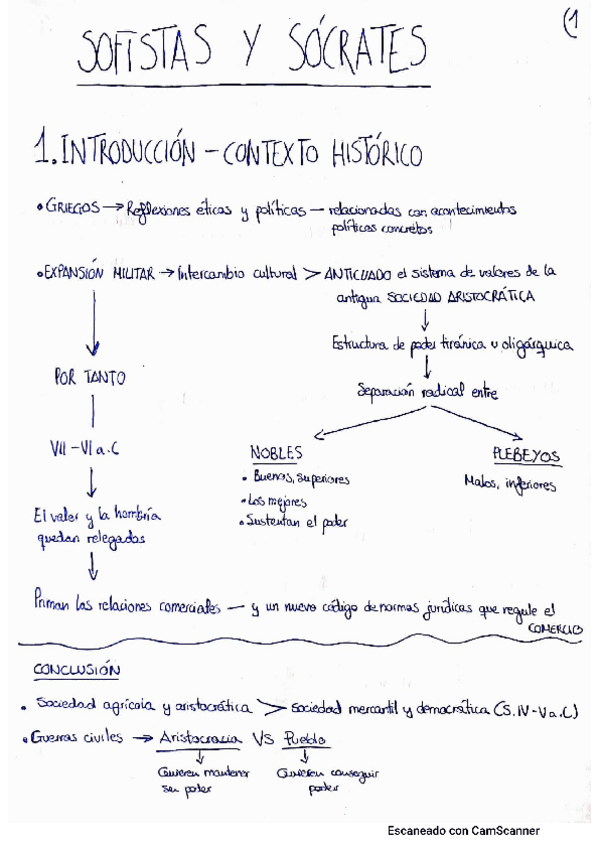 (1
SOFISTAS Y SÓCRATES
1. INTRODUCCIÓN - CONTEXTO HISTÓRICO
• GRIEGOS → Reflexiones éticas y políticas — relacionadas con acontecimientos
políticos concretos
• EXPANSIÓN MILITAR → Intercambio cultural > ANTICUADO el sistema de valores de la
antigua SOCIEDAD ARISTOCRÁTICA
Estructura de poder tiránica u oligárquica
POR TANTO
Separación radical entre
VII - VI a.C
NOBLES
PLEBEYOS
• Buenos, superiores
Malos, inferiores
• Los mejores
• Sustentan el poder
El valor y la hombría
quedan relegados
Priman las relaciones comerciales — y un nuevo código de normas jurídicas que regule el
COMERCIO
CONCLUSIÓN
• Sociedad agrícola y aristocrática > sociedad mercantil y democrática (S. IV - V a.C)
• Guerras civiles → Aristocracia VS Pueblo
Quieren mantener
su poder
Quieren conseguir
poder
Escaneado con CamScanner